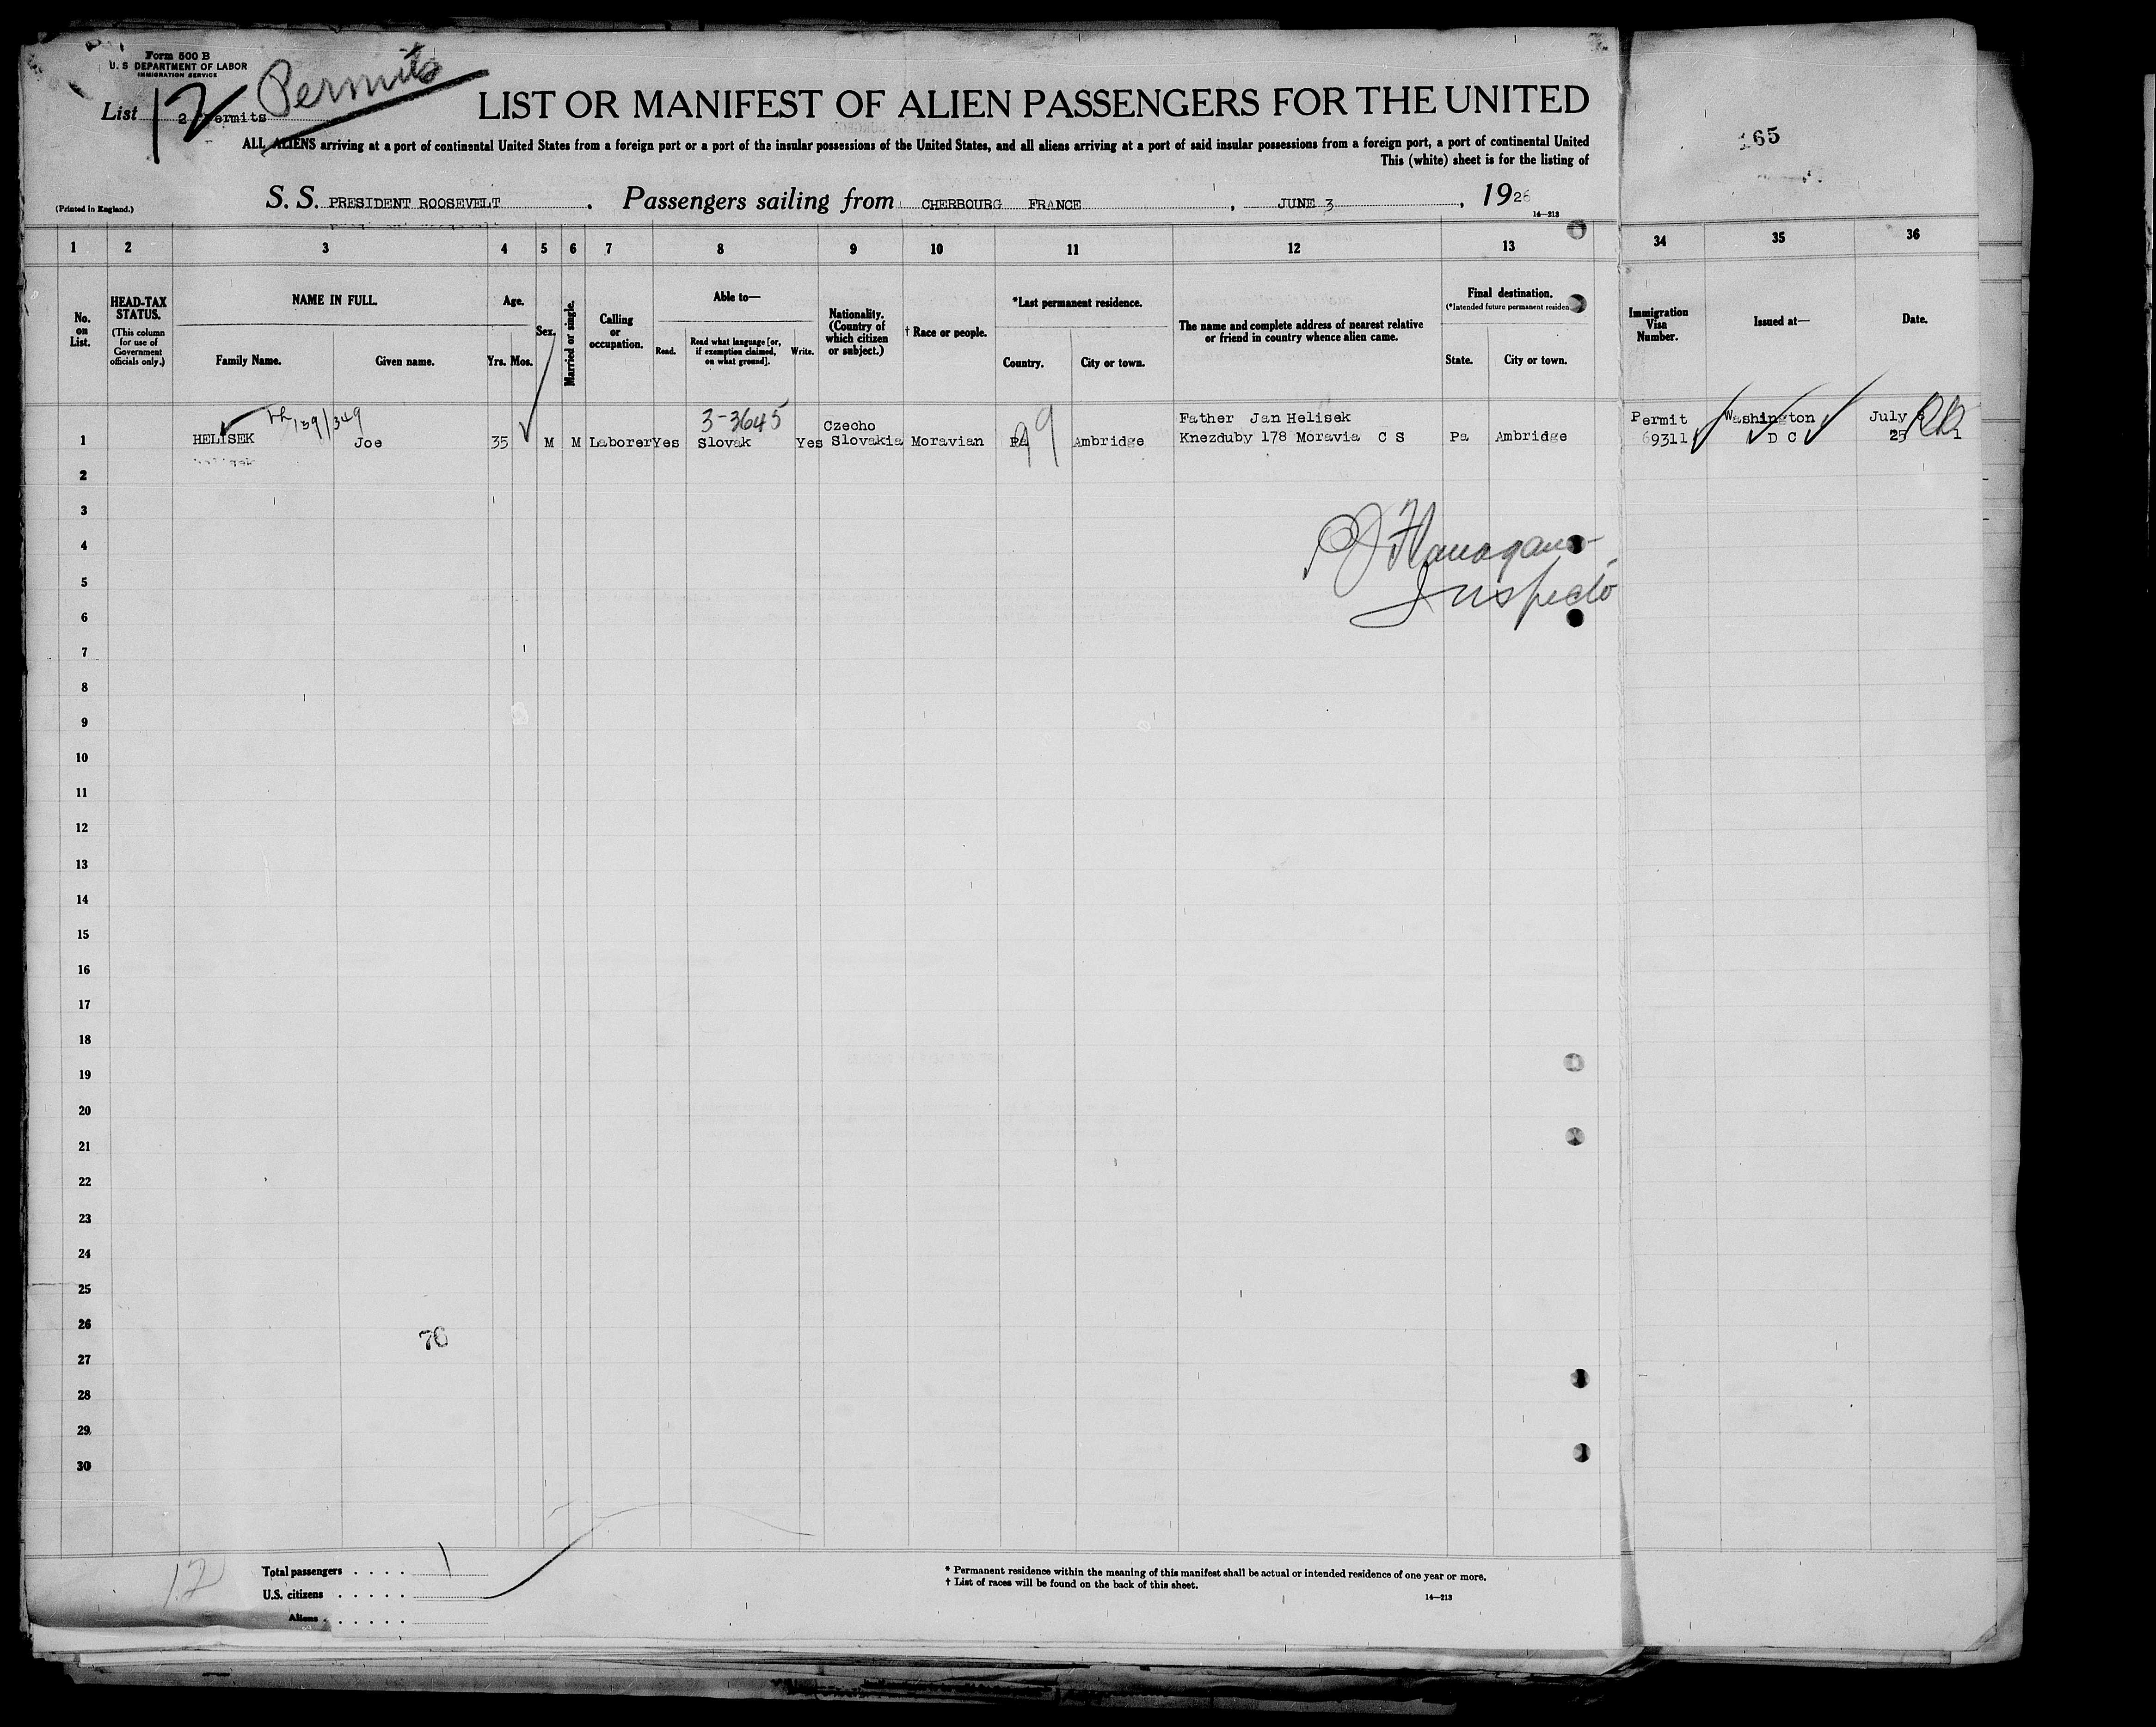 Form 500 B
U. S DEPARTMENT OF LABOR
IMMIGRATION SERVICE
Permits
List 12
2 Permits
LIST OR MANIFEST OF ALIEN PASSENGERS FOR THE UNITED
65
ALL ALIENS arriving at a port of continental United States from a foreign port or a port of the insular possessions of the United States, and all aliens arriving at a port of said insular possessions from a foreign port, a port of continental United
This (white) sheet is for the listing of
(Printed in England.)
S. S. PRESIDENT ROOSEVELT . Passengers sailing from CHERBOURG FRANCE , JUNE 3 , 1926
14—213
1 2 3 4 5 6 7 8 9 10 11 12 13 34 35 36
No. on List.
HEAD-TAX STATUS.
(This column for use of Government officials only.)
NAME IN FULL.
Family Name. Given name.
Age.
Yrs. Mos.
Sex.
Married or single.
Calling or occupation.
Able to—
Read. Read what language [or, if exemption claimed, on what ground]. Write.
Nationality. (Country of which citizen or subject.)
† Race or people.
*Last permanent residence.
Country. City or town.
The name and complete address of nearest relative or friend in country whence alien came.
Final destination.
(*Intended future permanent residen
State. City or town.
Immigration Visa Number.
Issued at—
Date.
139/349 3-3645 Czecho 99 Father Jan Helisek Permit Washington July
1 HELISEK Joe 35 M M Laborer Yes Slovak Yes Slovakia Moravian PA Ambridge Knezduby 178 Moravia C S Pa Ambridge 69311 D C 25
2
3
4
Flanagan
5
Inspecto
6
7
8
9
10
11
12
13
14
15
16
17
18
19
20
21
22
23
24
25
26
70
27
28
29
30
12
Total passengers . . . . 1
U.S. citizens . . . . .
Aliens . . . . .
* Permanent residence within the meaning of this manifest shall be actual or intended residence of one year or more.
† List of races will be found on the back of this sheet.
14—213